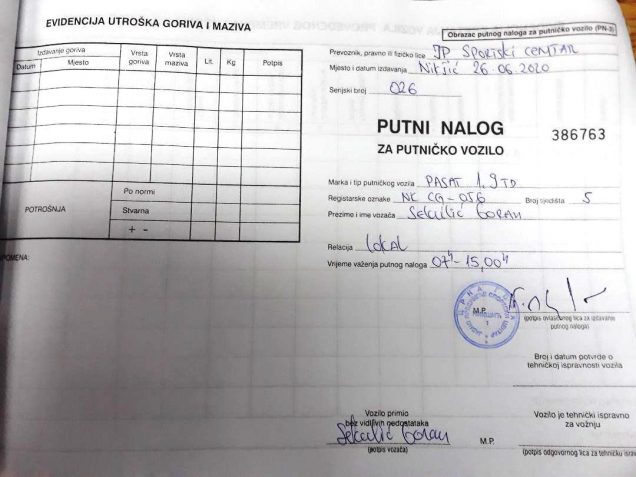 EVIDENCIJA UTROŠKA GORIVA I MAZIVA
Izdavanje goriva
Datum
Mjesto
Vrsta goriva
Vrsta maziva
Lit.
Kg
Potpis
POTROŠNJA
Po normi
Stvarna
+ -
Obrazac putnog naloga za putničko vozilo (PN-3)
Prevoznik, pravno ili fizičko lice JP SPORTSKI CENTAR
Mjesto i datum izdavanja Nikšić 26.06.2020
Serijski broj 026
PUTNI NALOG
386763
ZA PUTNIČKO VOZILO
Marka i tip putničkog vozila PASAT 1.9 TD
Registarske oznake NK CG-056 Broj sjedišta 5
Prezime i ime vozača Sekulić Goran
Relacija LOKAL
Vrijeme važenja putnog naloga 07h-15,00h
M.P.
(potpis ovlašćenog lica za izdavanje
putnog naloga)
Broj i datum potvrde o
tehničkoj ispravnosti vozila
Vozilo primio
bez vidljivih nedostataka
Sekulić Goran
(potpis vozača)
M.P.
Vozilo je tehnički ispravno
za vožnju
(potpis odgovornog lica za tehničku